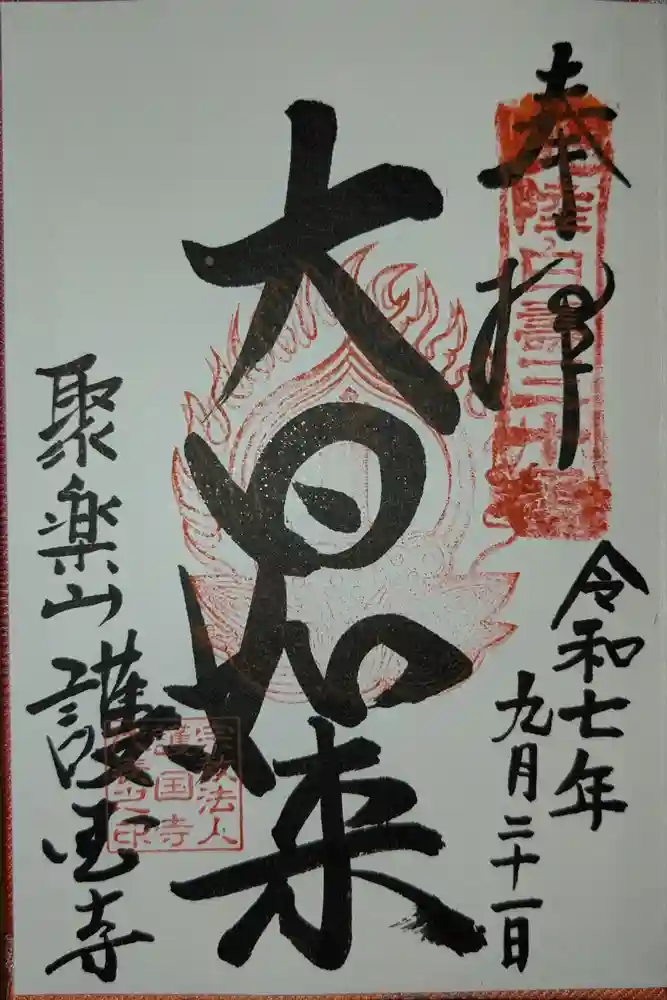 奉拝
令和七年
九月二十一日
大日如来
聚楽山 護国寺
宗教法人
護国寺